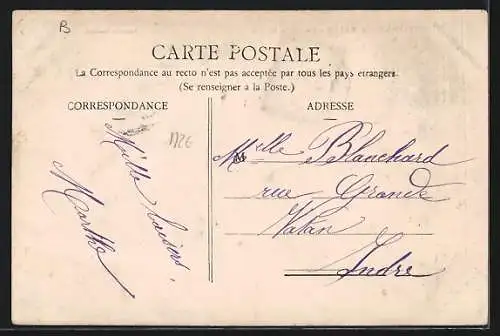 B
CARTE POSTALE
La Correspondance au recto n'est pas acceptée par tous les pays étrangers
(Se renseigner à la Poste.)
CORRESPONDANCE
ADRESSE
1726
Mille baisers
Marthe
Melle Blanchard
rue Grande
Vatan
Indre